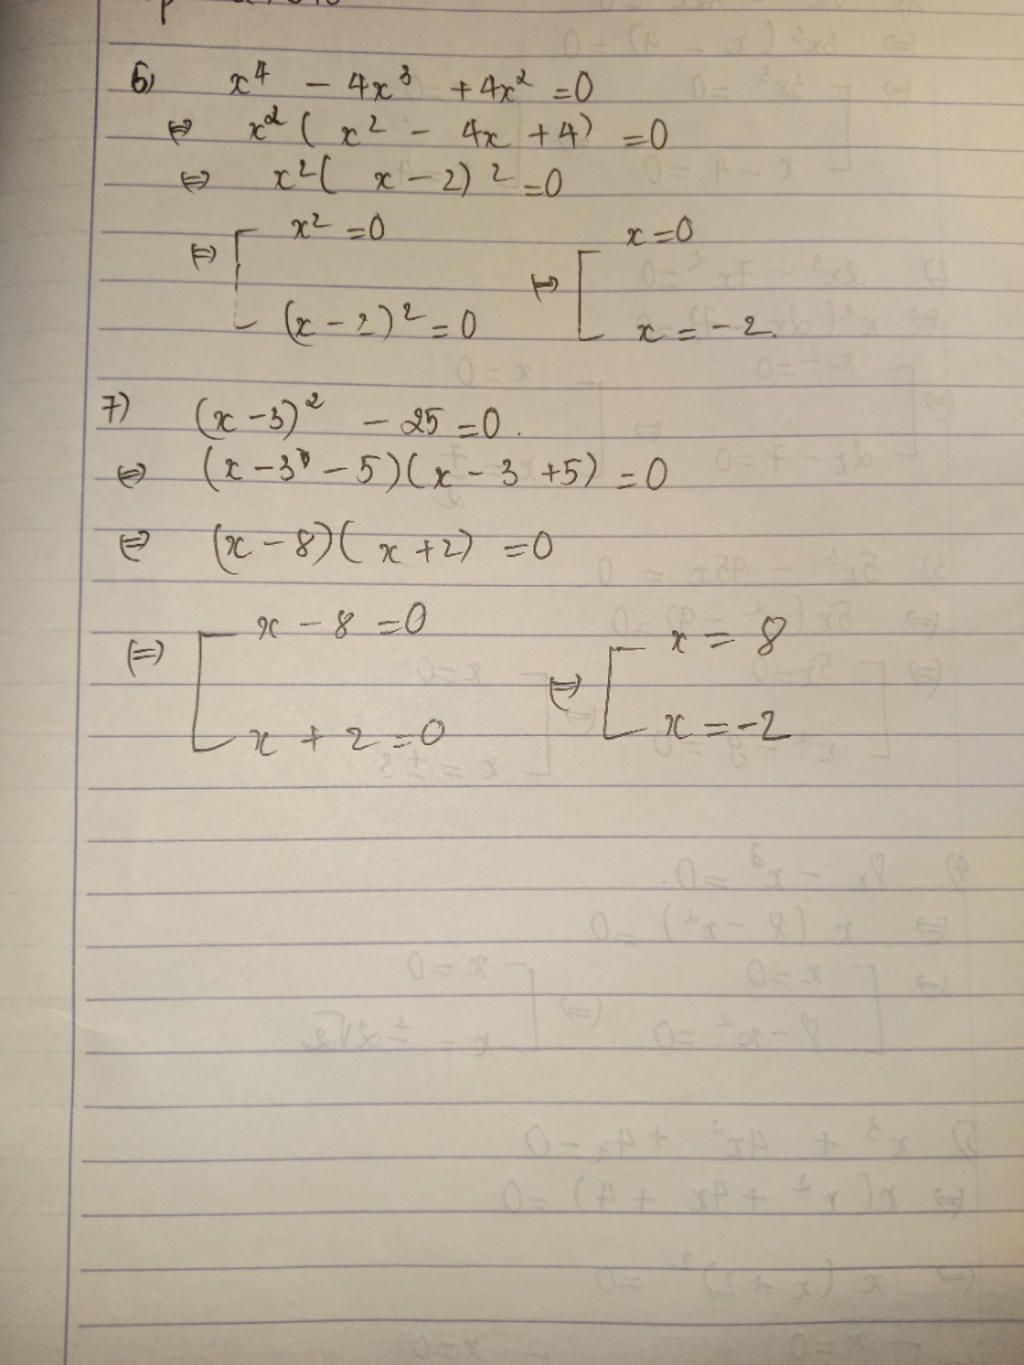 6) x⁴ - 4x³ + 4x² = 0
⇔ x² ( x² - 4x + 4) = 0
⇔ x² ( x - 2) ² = 0
⇔ [ x² = 0 ⇔ [ x = 0
(x - 2)² = 0 x = -2.
7) (x - 3)² - 25 = 0.
⇔ (x - 3 - 5)(x - 3 + 5) = 0
⇔ (x - 8)(x + 2) = 0
⇔ [ x - 8 = 0 ⇔ [ x = 8
x + 2 = 0 x = -2